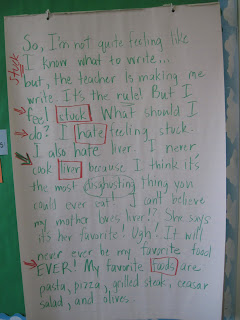 So, I'm not quite feeling like
Stuck
I know what to write...
but, the teacher is making me
write. It's the rule! But I
feel stuck. What should I
do? I hate feeling stuck.
I also hate liver. I never
cook liver because I think it's
the most disghusting thing you
could ever eat! I can't believe
my mother loves liver!? She says
it's her favorite! Ugh! It will
never ever be my favorite food
EVER! My favorite foods are
pasta, pizza, grilled steak, ceasar
salad, and olives.